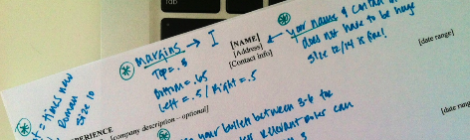 tab
margins → I
Top = .8
Bottom = .65
Left = .5 / Right = .5
[NAME]
[Address]
[Contact info]
your name & contact
does not have to be huge
size 12/14 is fine!
[date range]
[date range]
= times new
Roman
size 10
EXPERIENCE
[company description – optional]
your bullets between 3-6
relevant ones can